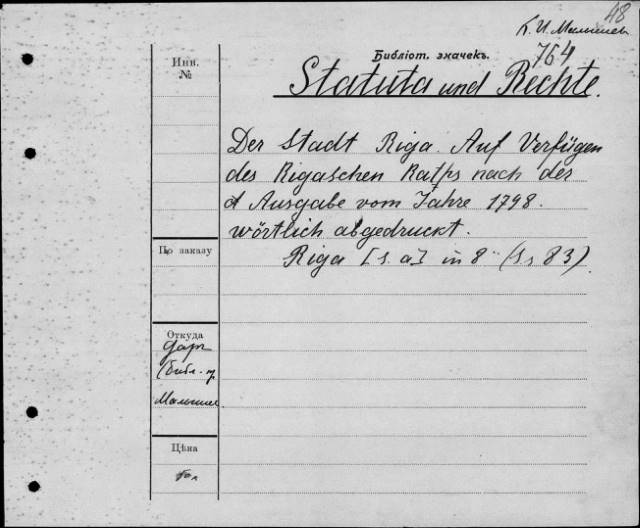 48
К. И. Малышев
764
Инв.
№
Библіот. значекъ.
Statuta und Rechte.
Der Stadt Riga. Auf Verfügen
des Rigaschen Raths nach der
d Ausgabe vom Jahre 1798.
wörtlich abgedruckt.
Riga [s. a] in 8° (S.s 83).
По заказу
Откуда
Даръ
(библ.
Малышев
Цѣна